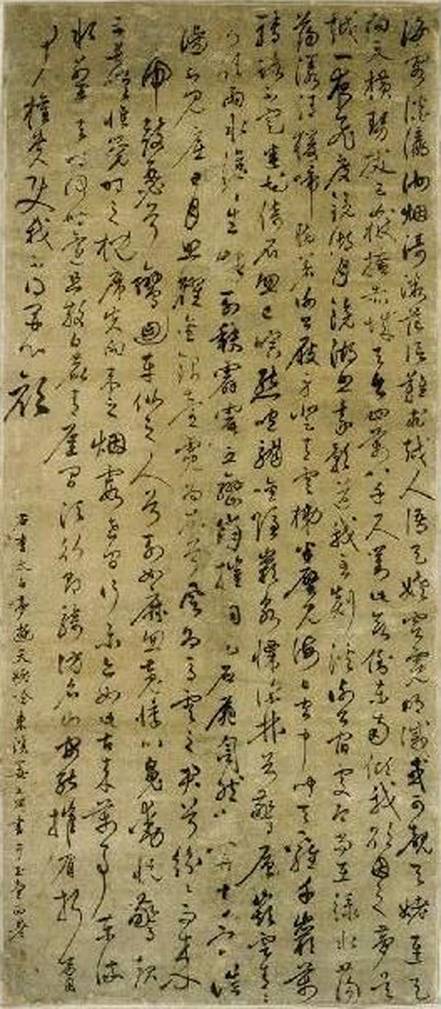 海客談瀛洲烟濤微茫信難求越人語天姥雲霓明滅或可觀天姥連天
向天橫勢拔五嶽掩赤城天台四萬八千尺對此欲倒東南傾我欲因之夢吳
越一夜飛度鏡湖月鏡湖照我影送我至剡溪謝公宿處今尚在淥水蕩
蕩漾清猿啼脚著謝公屐身登青雲梯半壁見海日空中聞天雞千巖萬
轉路不定迷花倚石忽已暝熊咆龍吟殷巖泉慄深林兮驚層巔雲青青
兮欲雨水澹澹生烟列缺霹靂丘巒崩摧洞天石扉訇然中開青冥浩
蕩不見底日月照耀金銀臺霓為衣兮風為馬雲之君兮紛紛而來下
虎鼓瑟兮鸞迴車仙之人兮列如麻忽魂悸以魄動怳驚起
而長嗟惟覺時之枕席失向來之烟霞世間行樂亦如此古來萬事東流
水別君去兮何時還且放白鹿青崖間須行即騎訪名山安能摧眉折腰
事權貴使我不得開心顏
右李太白夢遊天姥吟東溪書于